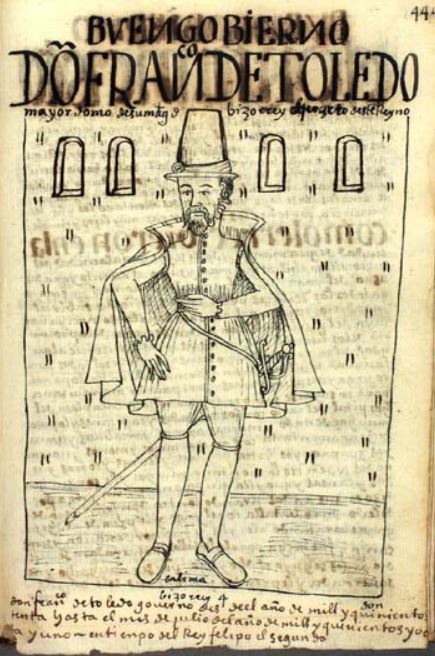 444
BVENGOBIERNO
DÕFRAN͠CODETOLEDO
mayordomo de su mag͠d bizorrey deste Reyno
en lima
bizorrey 4 don
don fran͠co de toledo governo desdeel año de mill y quiniento
tenta hasta el mis de julio del año de mill y quinientos y oo
a y uno – en tienpo del Rey felipo el segundo